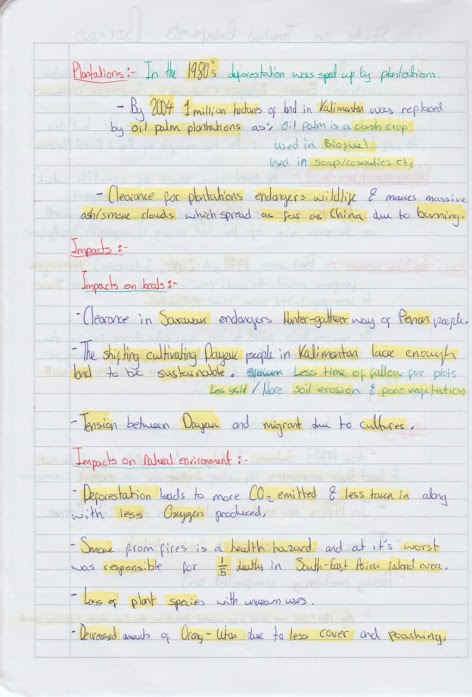 Plantations:- In the 1980's deforestation was sped up by plantations.
- By 2004 1 million hectares of land in Kalimantan was replaced
by oil palm plantations as:- Oil palm is a cash crop
used in Biofuel
used in soap/cosmetics etc.
- Clearance for plantations endangers wildlife & makes massive
ash/smoke clouds which spread as far as China due to burning.
Impacts:-
Impacts on locals:-
- Clearance in Sarawak endangers Hunter-gatherer way of Penan people.
- The shifting cultivating Dayak people in Kalimantan lack enough
land to be sustainable. Less time of fallow for plots
Less yield / More soil erosion & poor vegetation
- Tension between Dayak and migrant due to cultures.
Impacts on Natural environment:-
- Deforestation leads to more CO2 emitted & less taken in along
with less Oxygen produced.
- Smoke from fires is a health hazard and at it's worst
was responsible for 1/5 deaths in South-East Asian island area.
- Loss of plant species with unknown uses.
- Decreased amounts of Orang-Utan due to less cover and poaching.